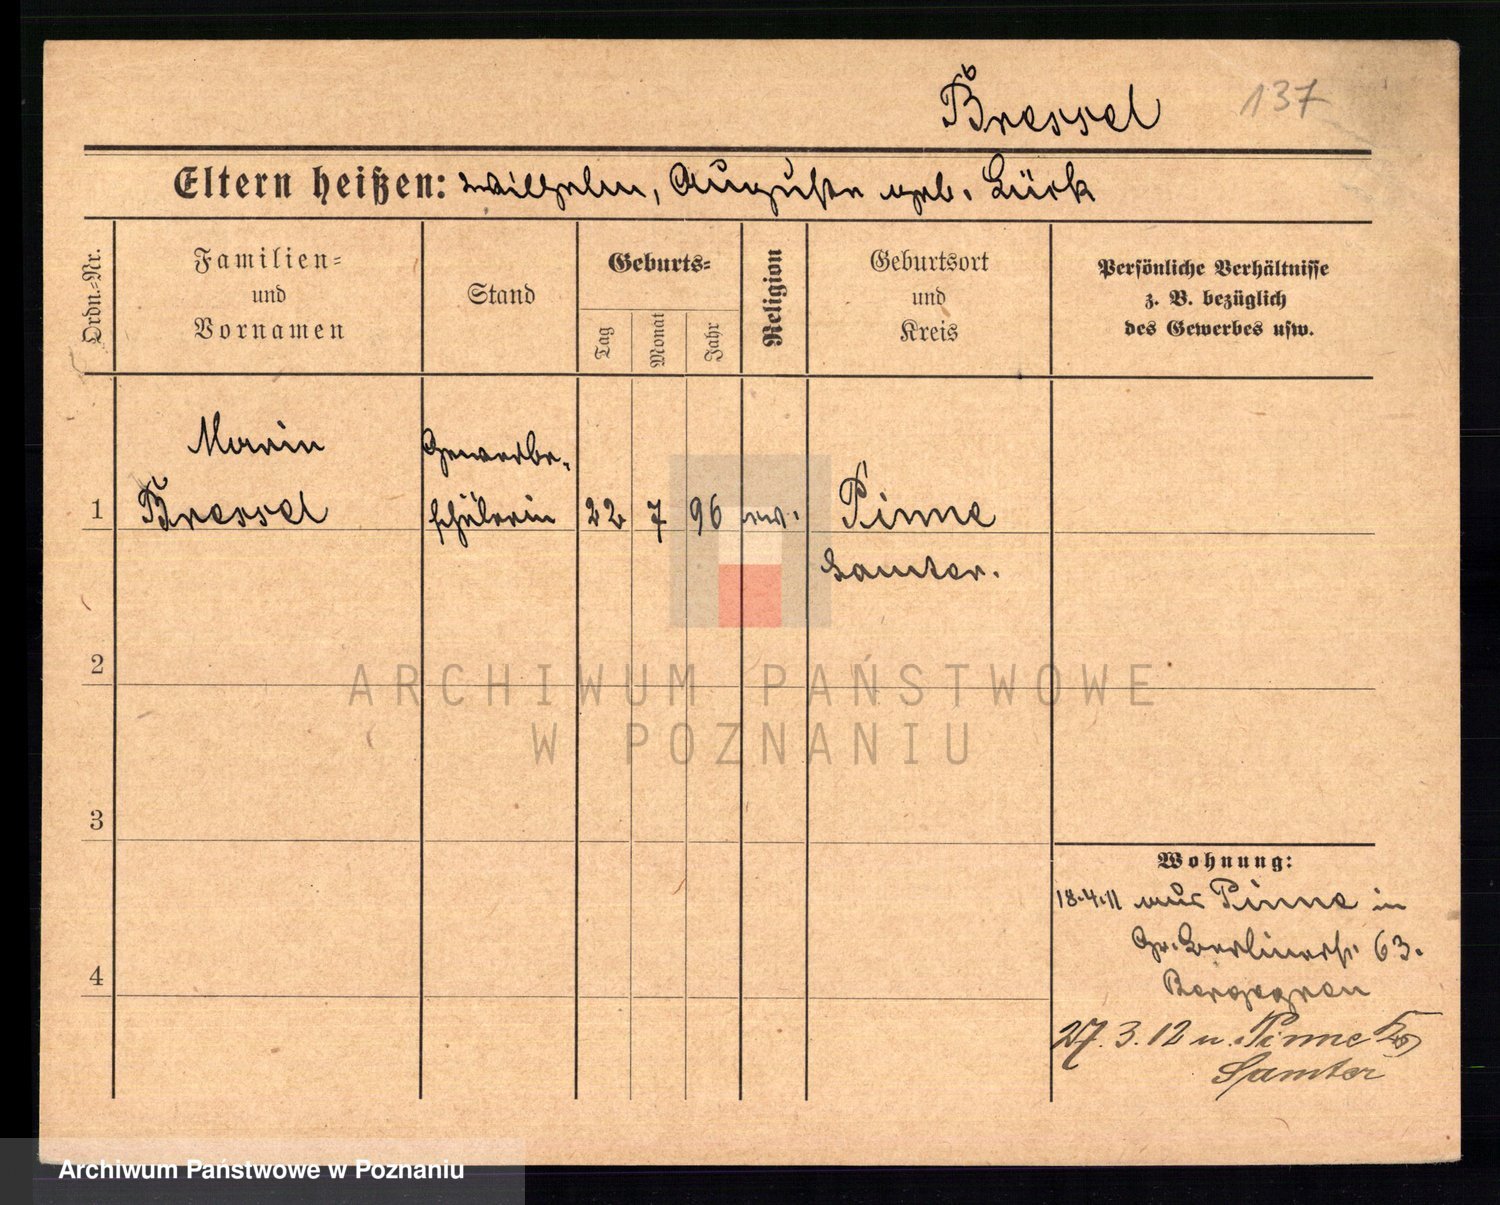 Bressel
137
Eltern heißen: Wilhelm, Auguste geb. Lück
Ordn.-Nr.
Familien-
und
Vornamen
Stand
Geburts-
Tag
Monat
Jahr
Religion
Geburtsort
und
Kreis
Persönliche Verhältnisse
z. B. bezüglich
des Gewerbes usw.
1
Marie
Bressel
Gewerbe-
schülerin
22
7
96
ev.
Pinne
Samter.
2
ARCHIWUM PAŃSTWOWE
W POZNANIU
3
Wohnung:
18.4.11 aus Pinne in
Gr. Berlinerst. 63.
4
27.3.12 n. Pinne Krs
Samter
Archiwum Państwowe w Poznaniu